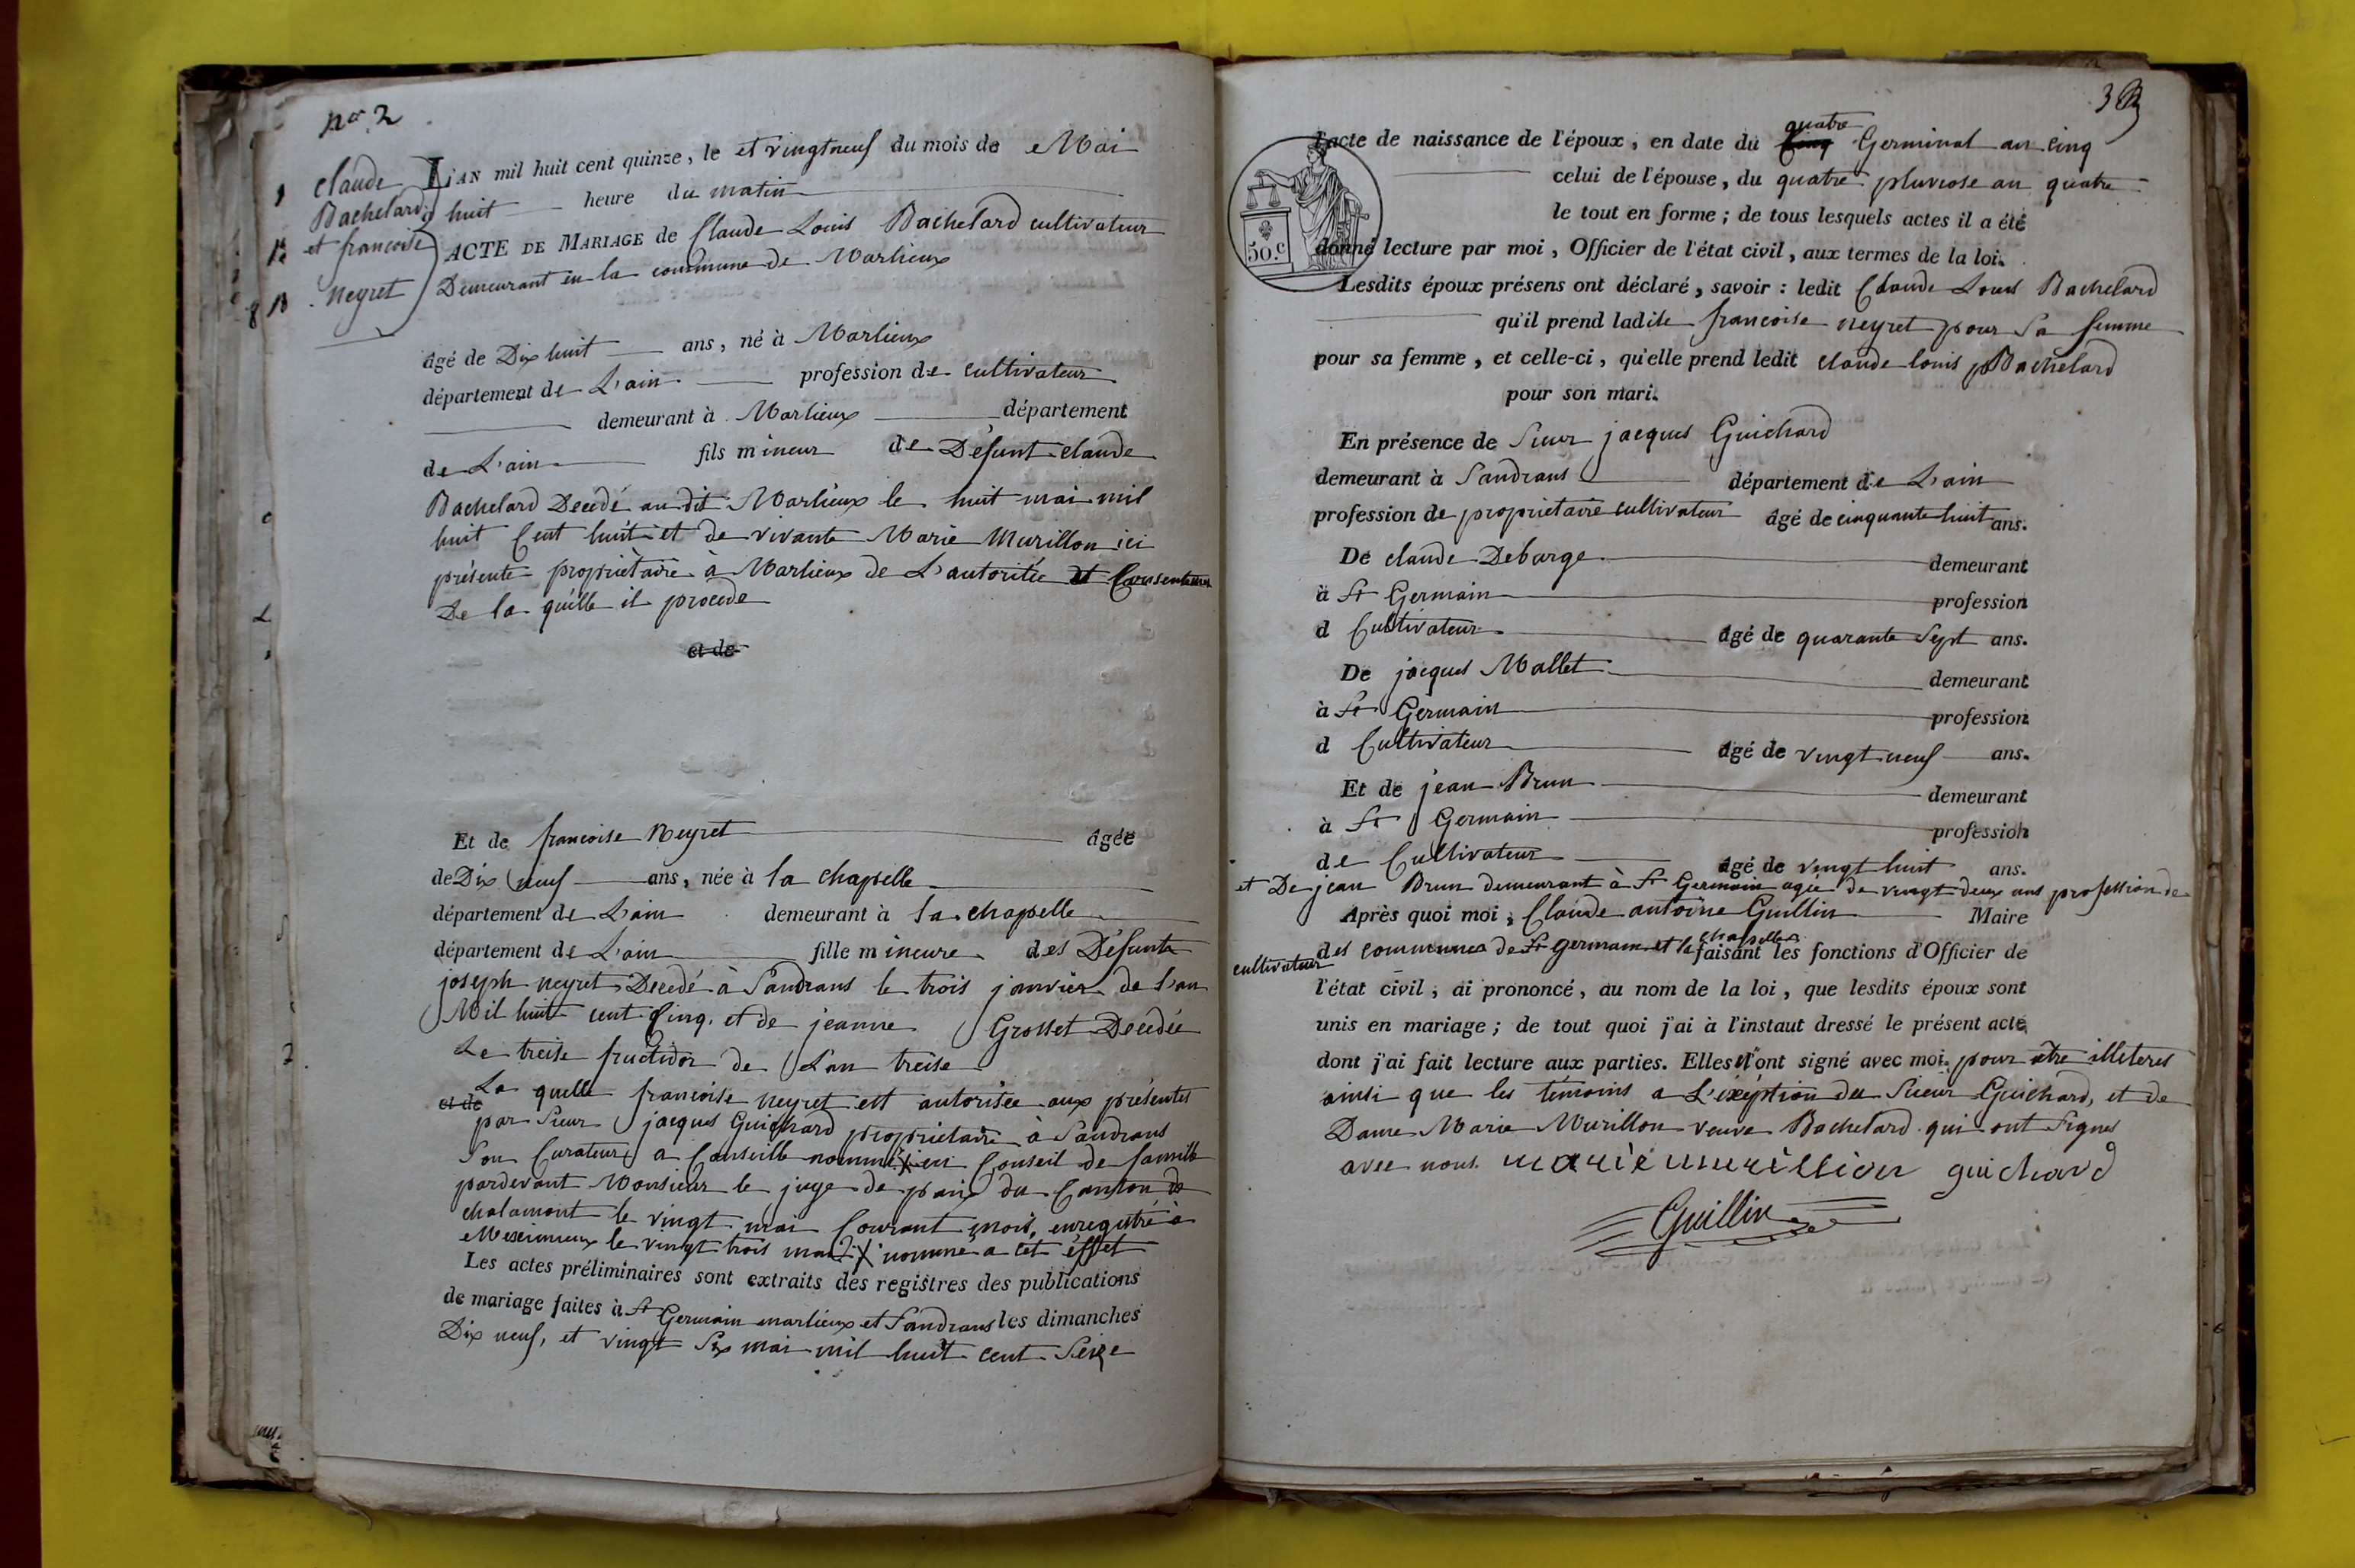 no 2
Claude
Bachelard
et francoise
neyret
L'AN mil huit cent quinze, le et vingt neuf du mois de Mai
huit heure du matin
ACTE DE MARIAGE de Claude Louis Bachelard cultivateur
Demeurant en la commune de Marlieux
âgé de Dix huit ans, né à Marlieux
département de L'ain profession de cultivateur
demeurant à Marlieux département
de L'ain fils mineur de Défunt claude
Bachelard Decedé au dit Marlieux le huit mai mil
huit Cent huit et de vivante Marie Murillon ici
présente propriètaire à Marlieux de L'autoritée et Consentement
De la quélle il procede
et de
Et de francoise Neyret âgée
de Dix neuf ans, née à la chapelle
département de L'ain demeurant à la chapelle
département de L'ain fille mineure des Défunts
joseph neyret Decedé à Sandrans le trois janvier de l'an
Mil huit cent Cinq. et de jeanne Grosset Decedée
Le treise fructidor de L'an treise
et de La quelle francoise neyret est autorisée aux présentes
par Sieur jacques Guichard propriétaire à Sandrans
Son Curateur a Conseille nommé X en Conseil de famille
pardevant Monsieur le juge de paix du Canton de
chalamont le vingt mai Courant mois, enregistré à
Meximieux le vingt trois mai X nommé a cet éffet
Les actes préliminaires sont extraits des registres des publications
de mariage faites à St Germain marlieux et Sandrans les dimanches
Dix neuf, et vingt Six mai mil huit cent Seize
3
50.c
l'acte de naissance de l'époux, en date du cinq quatre Germinal an cinq
celui de l'épouse, du quatre pluviose an quatre
le tout en forme; de tous lesquels actes il a été
donné lecture par moi, Officier de l'état civil, aux termes de la loi.
Lesdits époux présens ont déclaré, savoir : ledit Claude Louis Bachelard
qu'il prend ladite francoise neyret pour Sa femme
pour sa femme, et celle-ci, qu'elle prend ledit claude louis Bachelard
pour son mari.
En présence de Sieur jacques Guichard
demeurant à Sandrans département de L'ain
profession de propriétaire cultivateur âgé de cinquante huit ans.
De claude Debarge demeurant
à St Germain profession
d Cultivateur âgé de quarante Sept ans.
De jacques Mallet demeurant
à St Germain profession
d Cultivateur âgé de vingt neuf ans.
Et de jean Brun demeurant
à St Germain profession
de Cultivateur âgé de vingt huit ans.
et De jean Brun demeurant à St Germain agée de vingt deux ans profession de
cultivateur
Après quoi moi, Claude antoine Guillin Maire
des communes de St germain et la chapelle faisant les fonctions d'Officier de
l'état civil, ai prononcé, au nom de la loi, que lesdits époux sont
unis en mariage; de tout quoi j'ai à l'instaut dressé le présent acte,
dont j'ai fait lecture aux parties. Elles n'ont signé avec moi. pour être illiteres
ainsi que les témoins a L'exéption du Sieur Guichard, et de
Dame Marie Murillon veuve Bachelard qui ont Signés
avec nous. marie murillion guichard
Guillin